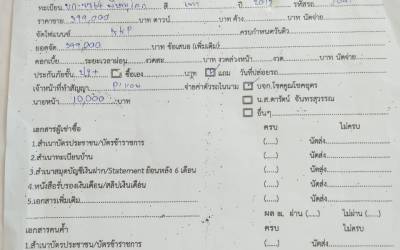 ทะเบียน ขก-4764 พิษณุโลก สี เทา ปี 2019 รหัสรถ
ราคาขาย 399,000 บาท ดาวน์ บาท ค้าง บาท นัดจ่าย
จัดไฟแนนซ์ KKP ครบกำหนดรับตัว
ยอดจัด 399,000 บาท ข้อเสนอ (เพิ่มเติม)
ดอกเบี้ย ระยะเวลาผ่อน งวดละ งวดล่วงหน้า งวด บาท นัดจ่าย
ประกันภัยชั้น ซื้อเอง บาท แถม วันที่ปล่อยรถ
เจ้าหน้าที่ทำสัญญา จ่ายค่าตัวรถในนาม บจก.โชคคูณโชคยูคาร
นายหน้า 10,000 บาท น.ส.ดารัตน์ จันทรสุวรรณ
อื่นๆ
เอกสารผู้เช่าซื้อ ครบ ไม่ครบ
1.สำเนาบัตรประชาชน/บัตรข้าราชการ (....) (....) นัดส่ง
2.สำเนาทะเบียนบ้าน (....) (....) นัดส่ง
3.สำเนาสมุดบัญชีเงินฝาก/Statement ย้อนหลัง 6 เดือน (....) (....) นัดส่ง
4.หนังสือรับรองเงินเดือน/สลิปเงินเดือน (....) (....) นัดส่ง
5.เอกสารเพิ่มเติม (....) (....) นัดส่ง
ผล ผ่าน (....) ไม่ผ่าน (....)
เอกสารคนค้ำ ครบ ไม่ครบ
1.สำเนาบัตรประชาชน/บัตรข้าราชการ (....) (....) นัดส่ง